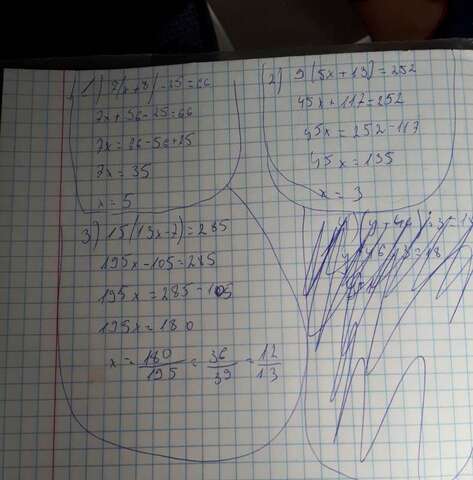 1) 7(x+8)-25=66
7x+56-25=66
7x=66-56+25
7x=35
x=5
2) 9(5x+13)=252
45x+117=252
45x=252-117
45x=135
x=3
3) 15(13x-7)=285
195x-105=285
195x=285-105
195x=180
x=180/195=36/39=12/13